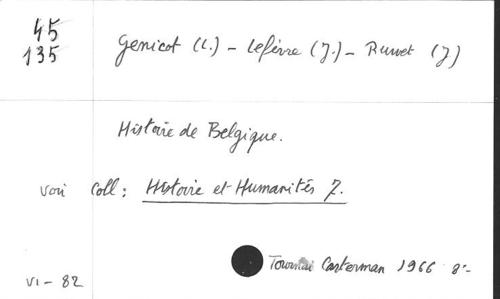 45
135
Genicot (L.) - Lefèvre (J.) - Ruwet (J)
Histoire de Belgique.
voir Coll : Histoire et Humanités 7.
Tournai Casterman 1966 8°-
VI - 82